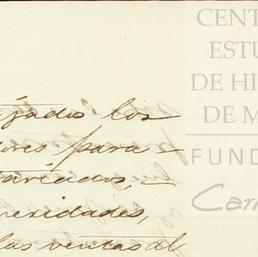 CENT
ESTU
DE HI
DE M
FUND
Car
jados los
ores para
variados,
nexidades,
las ventas al